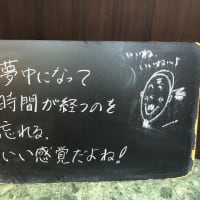 夢中になって
時間が経つのを
忘れる。
いい感覚だよね!
いいね、
いいね〜♪